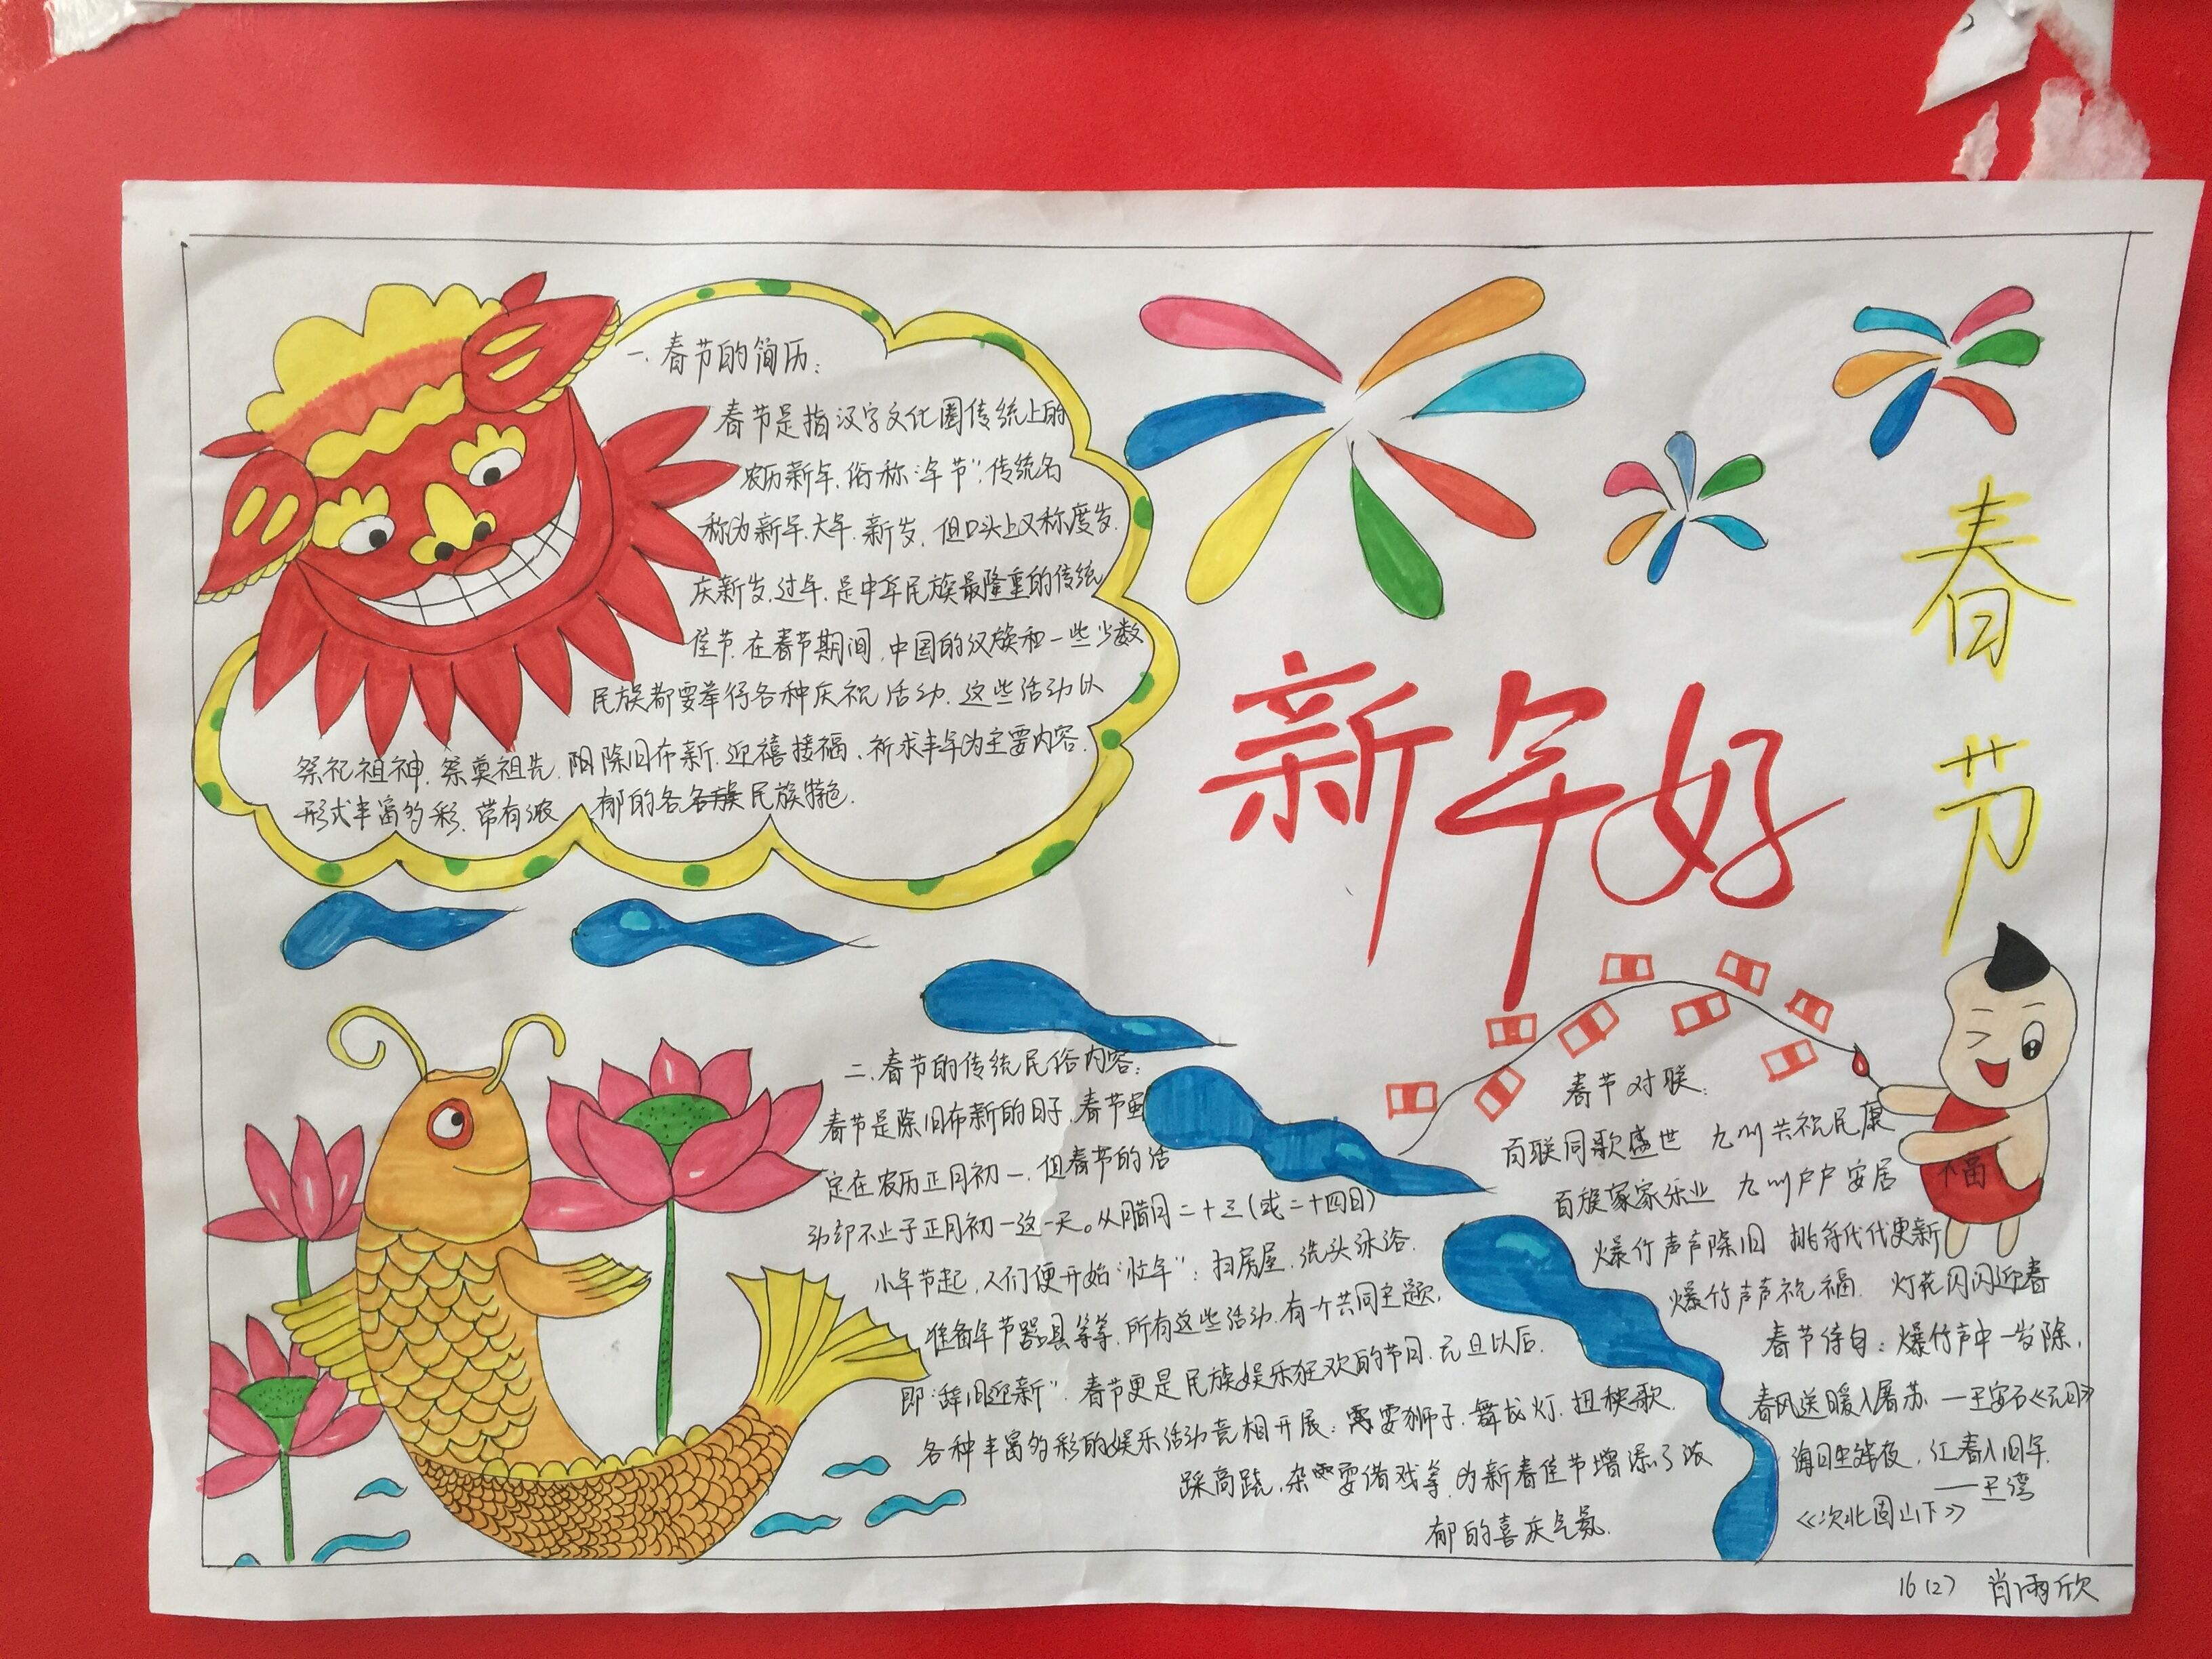 一、春节的简历：
春节是指汉字文化圈传统上的
农历新年,俗称“年节”,传统名
称为新年、大年、新岁,但口头上又称度岁、
庆新岁、过年,是中华民族最隆重的传统
佳节,在春节期间,中国的汉族和一些少数
民族都要举行各种庆祝活动,这些活动以
祭祀祖神、祭奠祖先、除旧布新、迎禧接福、祈求丰年为主要内容.
形式丰富多彩,带有浓郁的各民族特色.
新年好
春节
二、春节的传统民俗内容：
春节是除旧布新的日子,春节虽
定在农历正月初一,但春节的活
动却不止于正月初一这一天。从腊月二十三(或二十四日)
小年节起,人们便开始“忙年”：扫房屋、洗头沐浴、
准备年节器具等等,所有这些活动,有一个共同主题,
即“辞旧迎新”.春节更是民族娱乐狂欢的节日,元旦以后,
各种丰富多彩的娱乐活动竞相开展：耍狮子、舞龙灯、扭秧歌、
踩高跷、杂耍诸戏等,为新春佳节增添了浓
郁的喜庆气氛.
春节对联：
百联同歌盛世 九州共祝民康
百族家家乐业 九州户户安居
爆竹声声除旧 桃符代代更新
爆竹声声祝福 灯花闪闪迎春
春节诗句：爆竹声中一岁除,
春风送暖入屠苏 —王安石《元日》
海日生残夜,江春入旧年.
——王湾
《次北固山下》
福
16(2) 肖雨欣